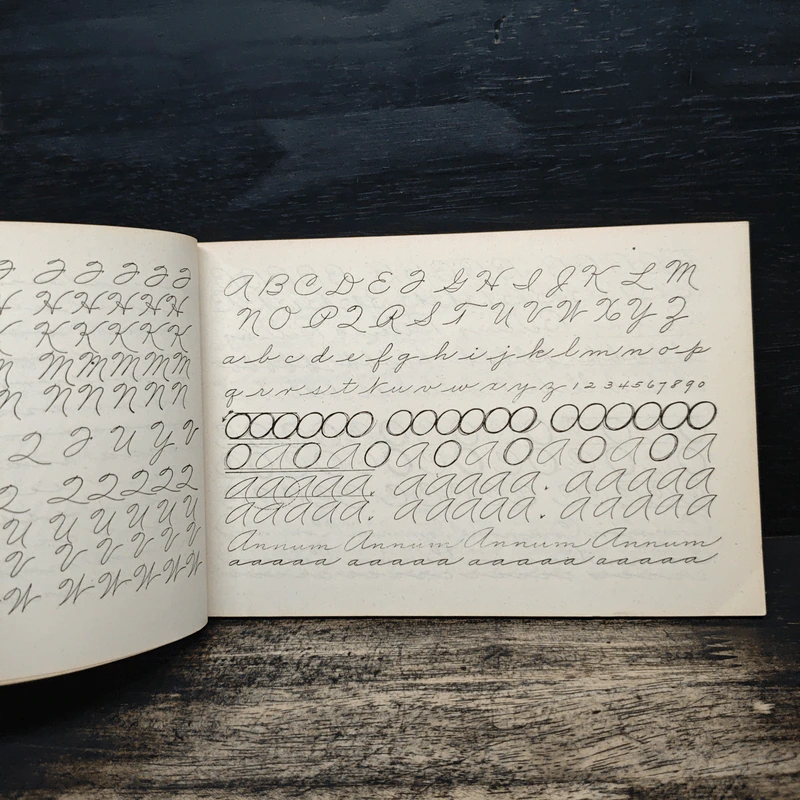 Q Q Q Q Q
H H H H H H
K K K K K
M M M M M M
N N N N N N
2 Q U Y V
2 2 2 2 2 2
U U U U U U
V V V V V V
W W W W W W
A B C D E F G H I J K L M
N O P Q R S T U V W X Y Z
a b c d e f g h i j k l m n o p
q r r s t t u v w x y z 1 2 3 4 5 6 7 8 9 0
OOOOOO OOOOOO OOOOOO
O a O a O a O a O a O a O a
aaaaa. aaaaa. aaaaa
aaaaa. aaaaa. aaaaa
Annum Annum Annum Annum
aaaaa aaaaa aaaaa aaaaa